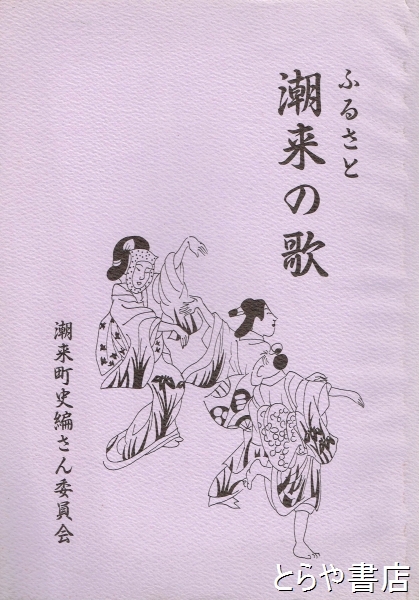 ふるさと
潮来の歌
潮来町史編さん委員会
とらや書店